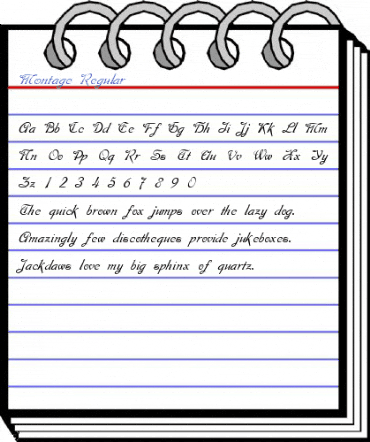 Montage Regular
Aa Bb Cc Dd Ee Ff Gg Hh Ii Jj Kk Ll Mm
Nn Oo Pp Qq Rr Ss Tt Uu Vv Ww Xx Yy
Zz 1 2 3 4 5 6 7 8 9 0
The quick brown fox jumps over the lazy dog.
Amazingly few discotheques provide jukeboxes.
Jackdaws love my big sphinx of quartz.